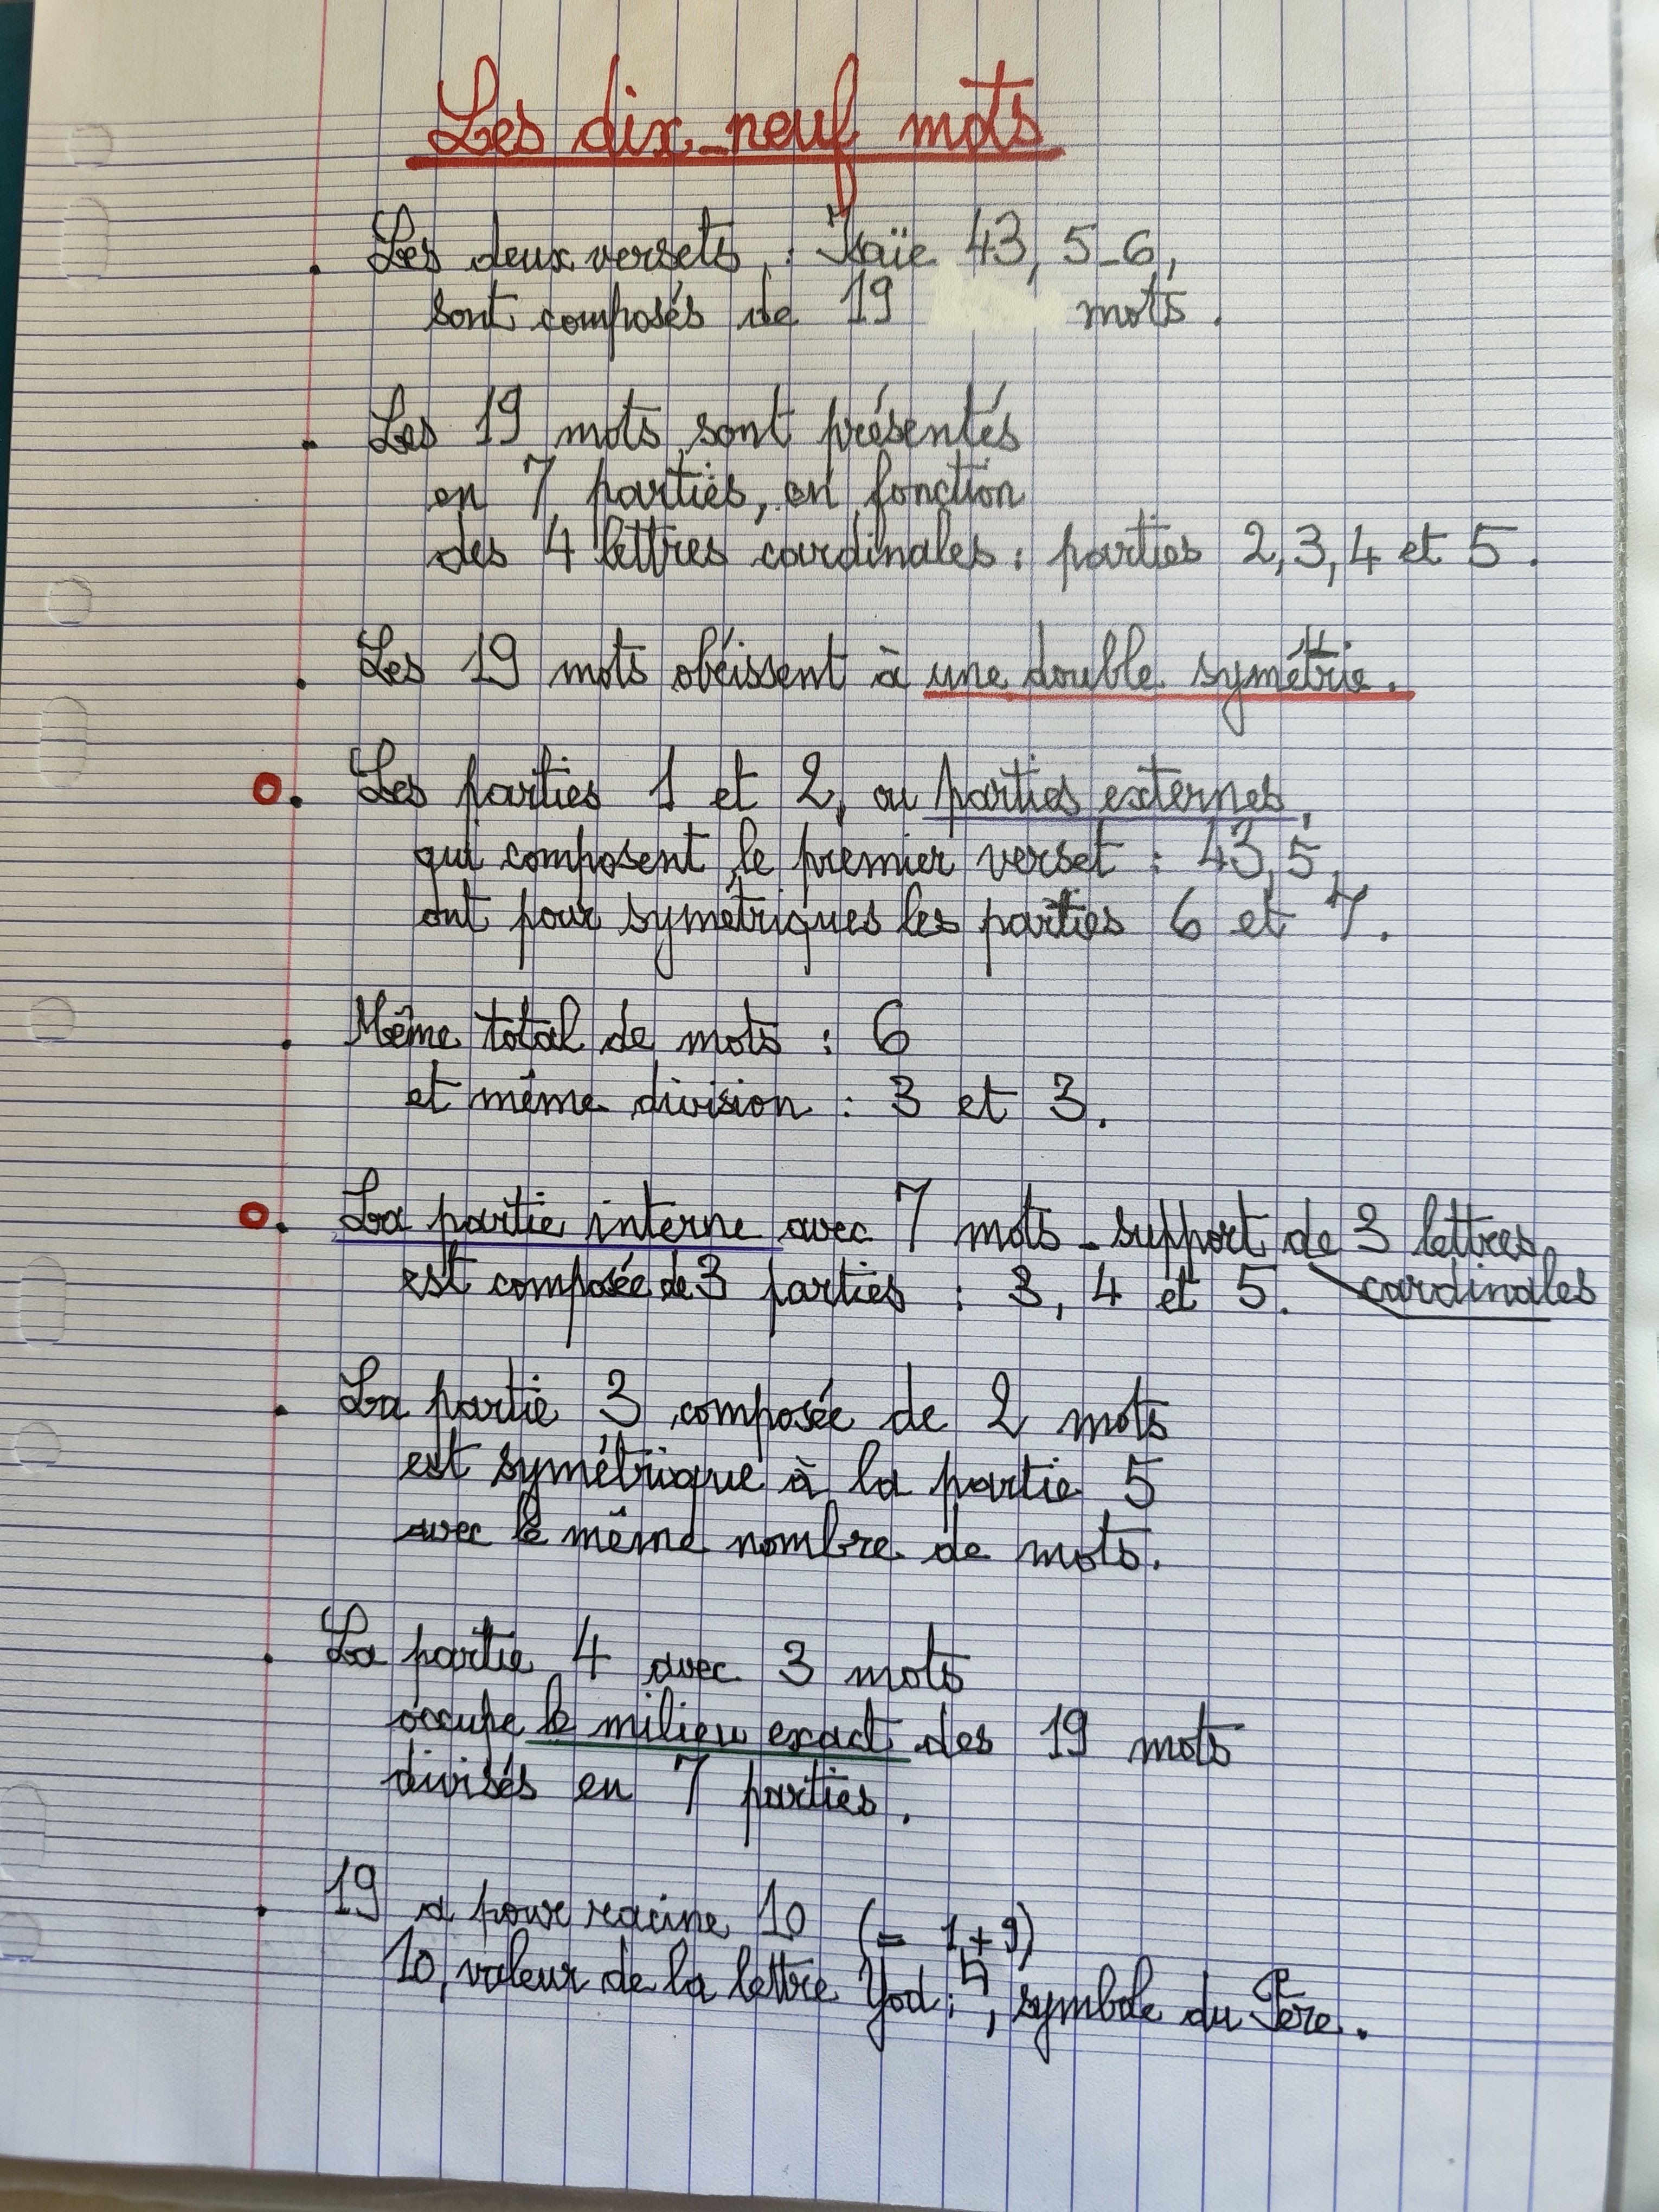 Les dix-neuf mots
. Les deux versets : Isaïe 43, 5-6,
sont composés de 19 mots.
. Les 19 mots sont présentés
en 7 parties, en fonction
des 4 lettres cardinales : parties 2, 3, 4 et 5.
. Les 19 mots obéissent à une double symétrie.
o. Les parties 1 et 2, ou parties externes,
qui composent le premier verset : 43, 5,
ont pour symétriques les parties 6 et 7.
. Même total de mots : 6
et même division : 3 et 3.
o. La partie interne avec 7 mots - support de 3 lettres
cardinales
est composée de 3 parties : 3, 4 et 5.
. La partie 3 composée de 2 mots
est symétrique à la partie 5
avec le même nombre de mots.
. La partie 4 avec 3 mots
occupe le milieu exact des 19 mots
divisés en 7 parties.
. 19 a pour racine 10 (= 1+9)
10, valeur de la lettre Yod : י, symbole du Père.